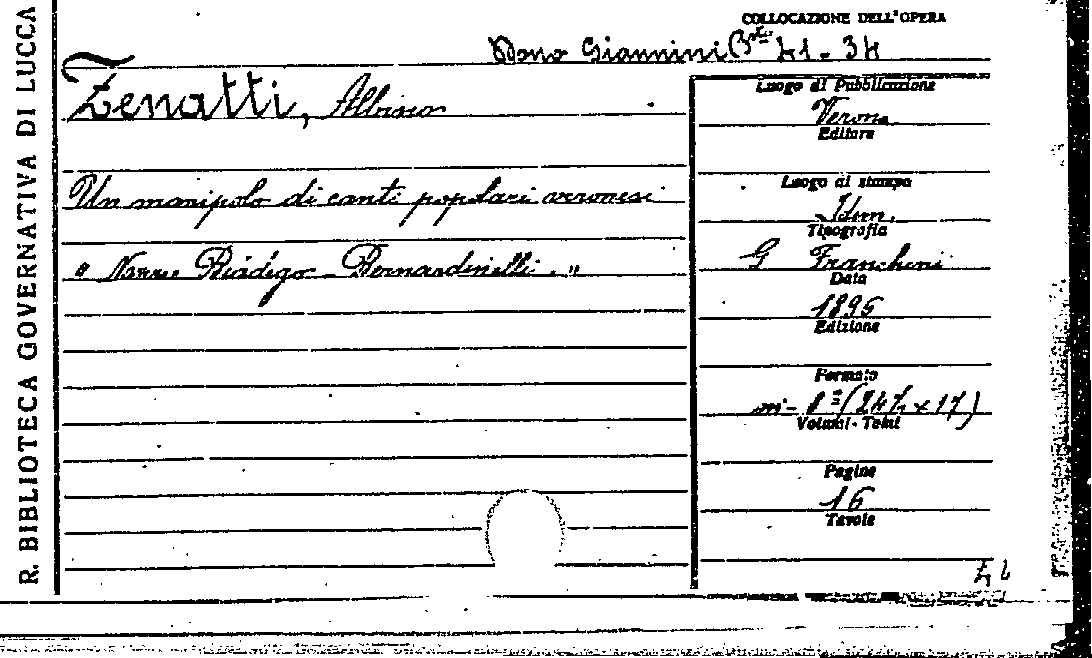 R. BIBLIOTECA GOVERNATIVA DI LUCCA
COLLOCAZIONE DELL'OPERA
Dono Giannini Bta 41-34
Zenatti, Albino
Un manipolo di canti popolari arronesi
" Nozze Biadego - Bernardinelli . "
Luogo di Pubblicazione
Verona
Editore
Luogo di stampa
Idem.
Tipografia
G Franchini
Data
1896
Edizione
Formato
in-8° (24½ x 17)
Volumi - Tomi
Pagine
16
Tavole